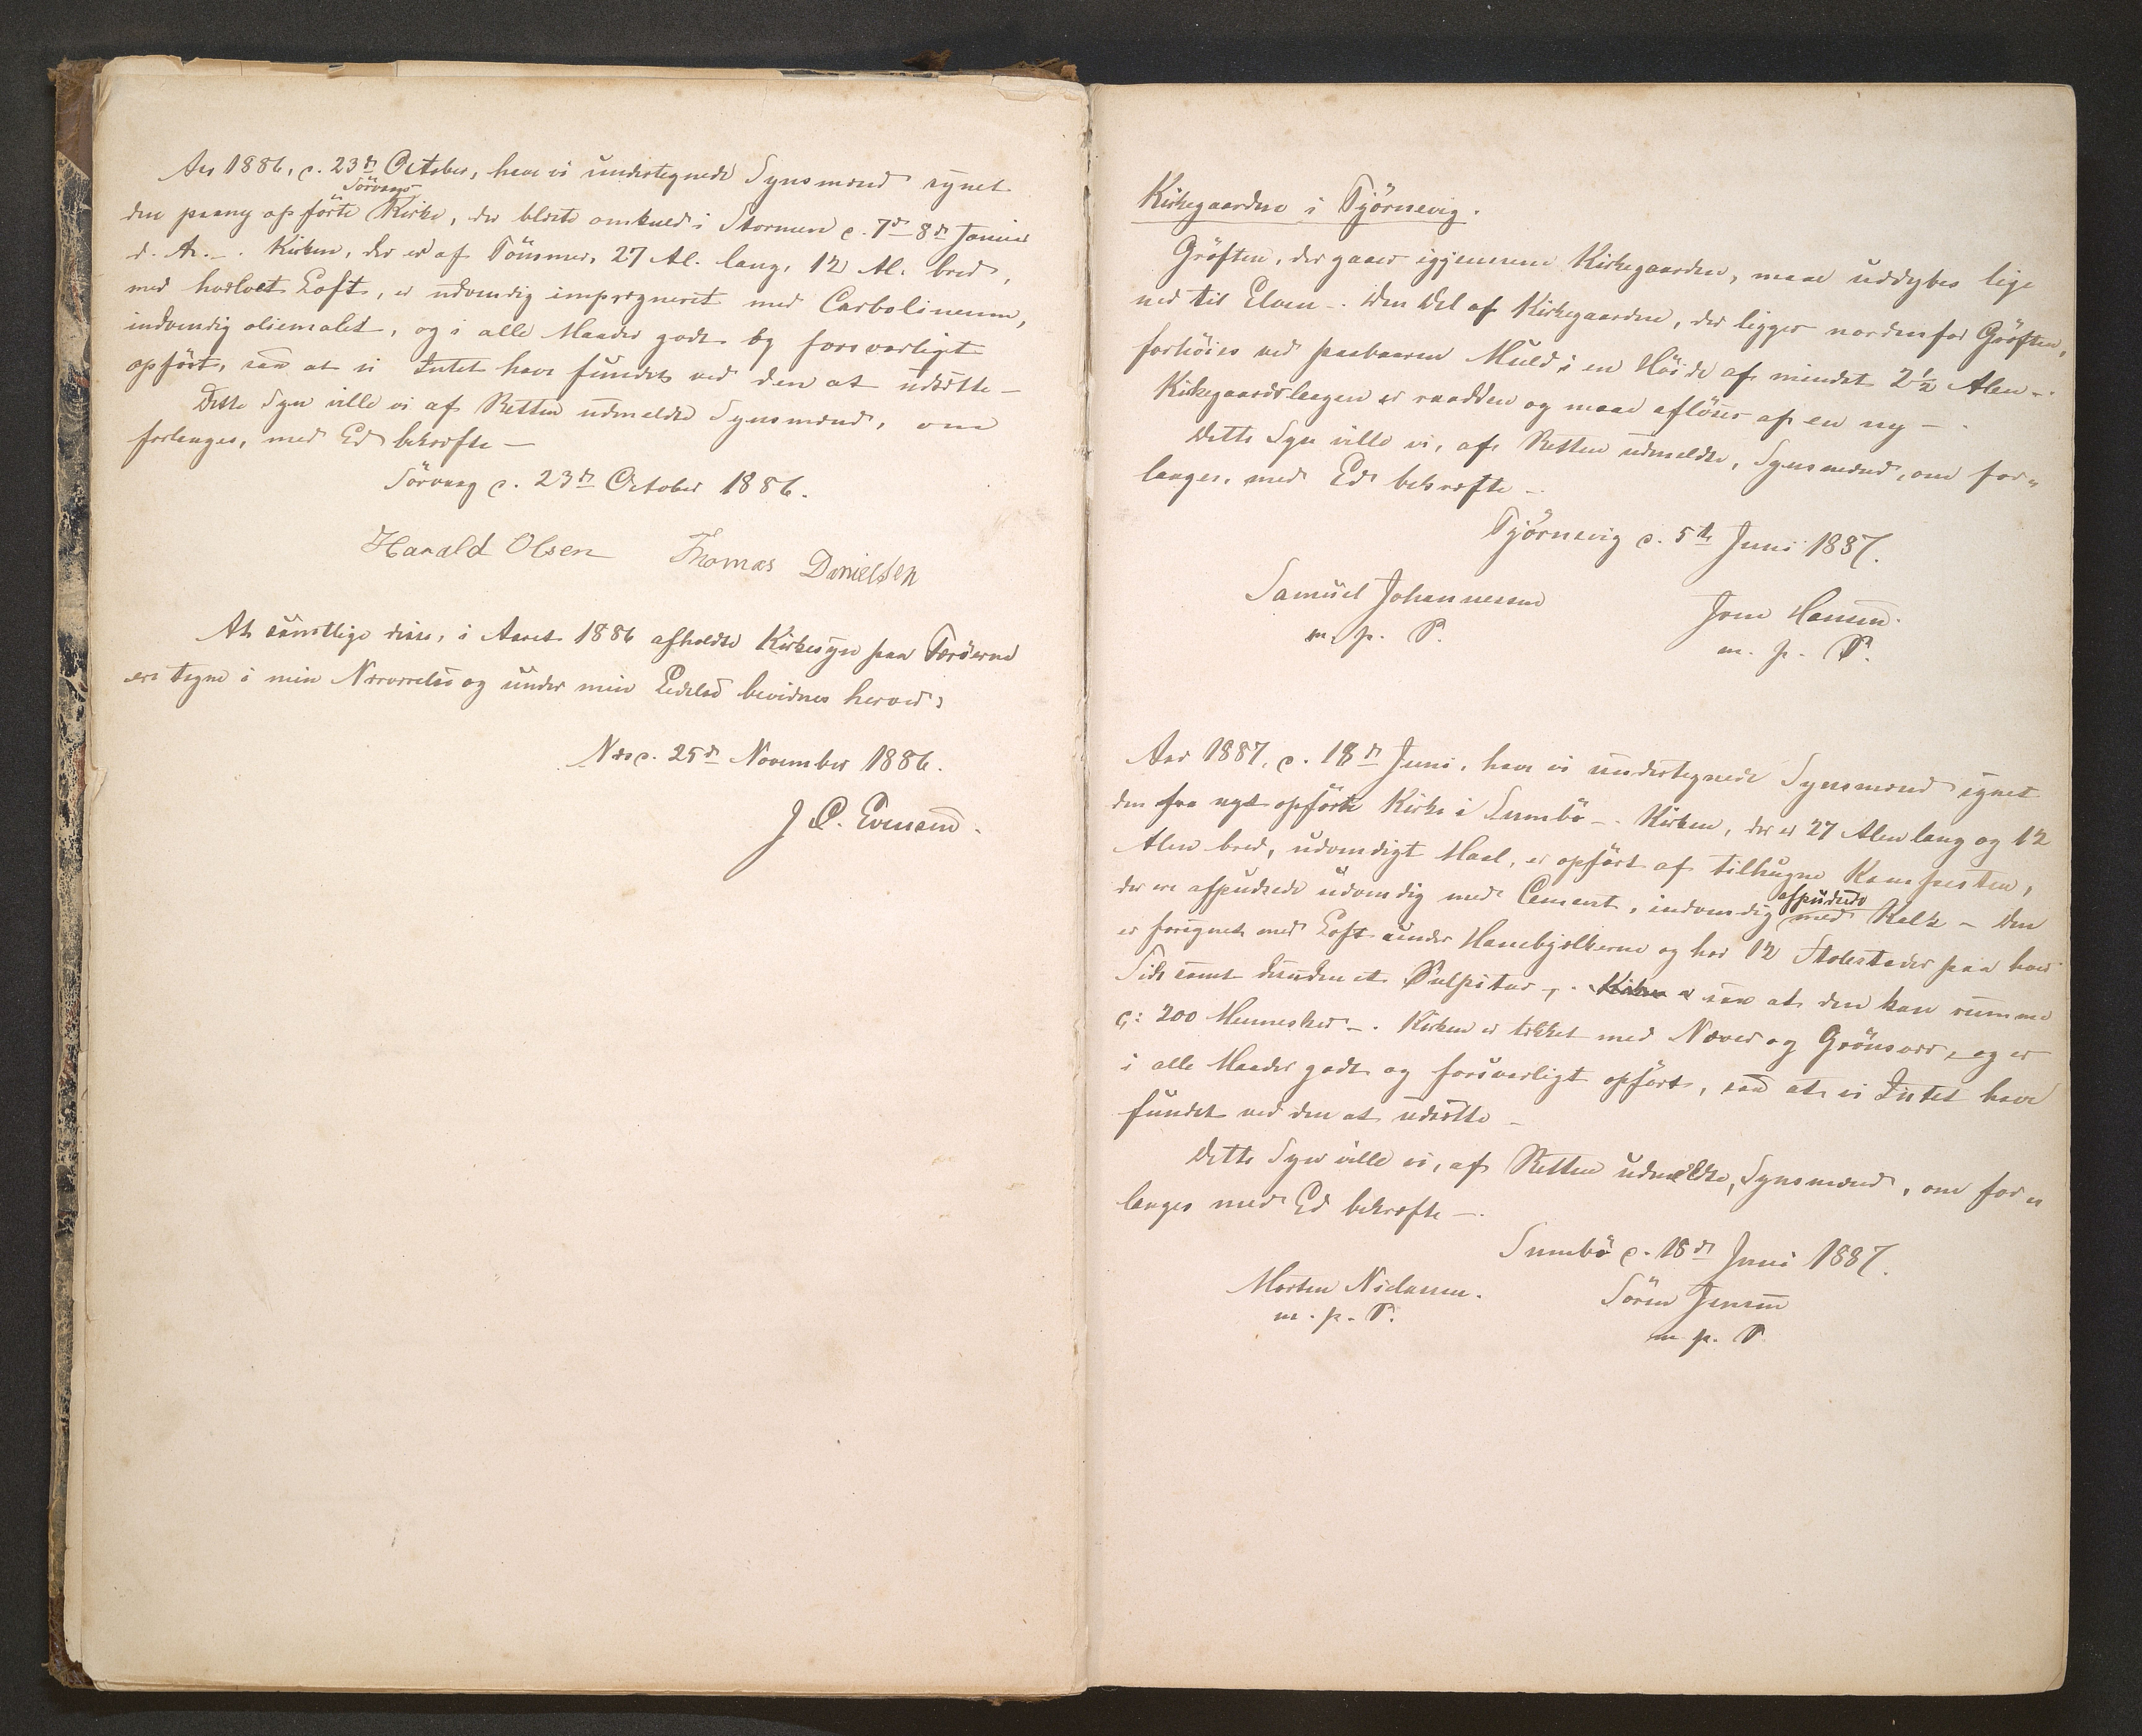 Aar 1886, d. 23de October, have vi undertegnede Synsmænd synet
Sörvaags
den paany opförte Kirke, der blæste omkuld i Stormen d. 7de-8de Januar
d. A. -. Kirken, der er af Tömmer, 27 Al. lang, 12 Al. bred,
med hvælvet Loft, er udvendig imprægneret med Carbolineum,
indvendig oliemalet, og i alle Maader godt og forsvarligt
opfört, saa at vi Intet have fundet ved den at udsætte -
Dette Syn ville vi af Retten udmeldte Synsmænd, om
forlanges, med Ed bekræfte -
Sörvaag d. 23de October 1886.
Harald Olsen Thomas Danielsen
At samtlige disse, i Aaret 1886 afholdte Kirkesyn paa Færöerne
ere tagne i min Nærværelse og under min Ledelse bevidnes herved:
Næs d. 25de November 1886.
J C. Evensen.
Kirkegaarden i Tjörnevig.
Gröften, der gaaer igjennem Kirkegaarden, maa uddybes lige
ned til Elven -. Den Del af Kirkegaarden, der ligger nordenfor Gröften,
forhöies ved paabaaren Muld i en Höide af mindst 2½ Alen -.
Kirkegaardsleagen er raadden og maa aflöses af en ny -.
Dette Syn ville vi, af Retten udmeldte, Synsmænd, om for„
langes, med Ed bekræfte -.
Tjörnevig d. 5te Juni 1887.
Samuel Johannessen Joen Hansen.
m. p. P. m. p. P.
Aar 1887, d. 18de Juni, have vi undertegnede Synsmænd synet
den fra nyt opförte Kirke i Sumbö -. Kirken, der er 27 Alen lang og 12
Alen bred, udvendigt Maal, er opfört af tilhugne Kampesten,
afpudsede
der ere afpudsede udvendig med Cement, indvendig med Kalk - Den
er forsynet med Loft under Hanebjælkerne og har 12 Stolestader paa hver
Side samt desuden et Pulpitur -, . Kirken er saa at den kan rumme
c: 200 Mennesker -. Kirken er tækket med Næver og Grönsvær, og er
i alle Maader godt og forsvarligt opfört, saa at vi Intet have
fundet ved den at udsætte -
Dette Syn ville vi, af Retten udmeldte, Synsmænd, om for„
langes med Ed bekræfte -.
Sumbö d. 18de Juni 1887.
Morten Niclasen. Sören Jensen
m. p. P. m. p. P